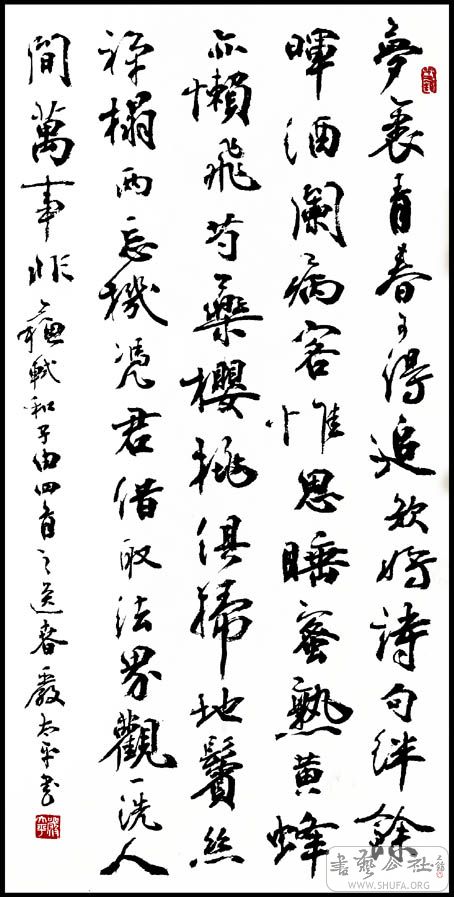 夢裏青春可得追欲將詩句絆餘
暉酒闌病客惟思睡蜜熟黃蜂
亦懶飛芍藥櫻桃俱掃地鬢絲
禪榻兩忘機憑君借取法界觀一洗人
間萬事非蘇軾和子由四首之送春嚴太平書
書藝公社
WWW.SHUFA.ORG